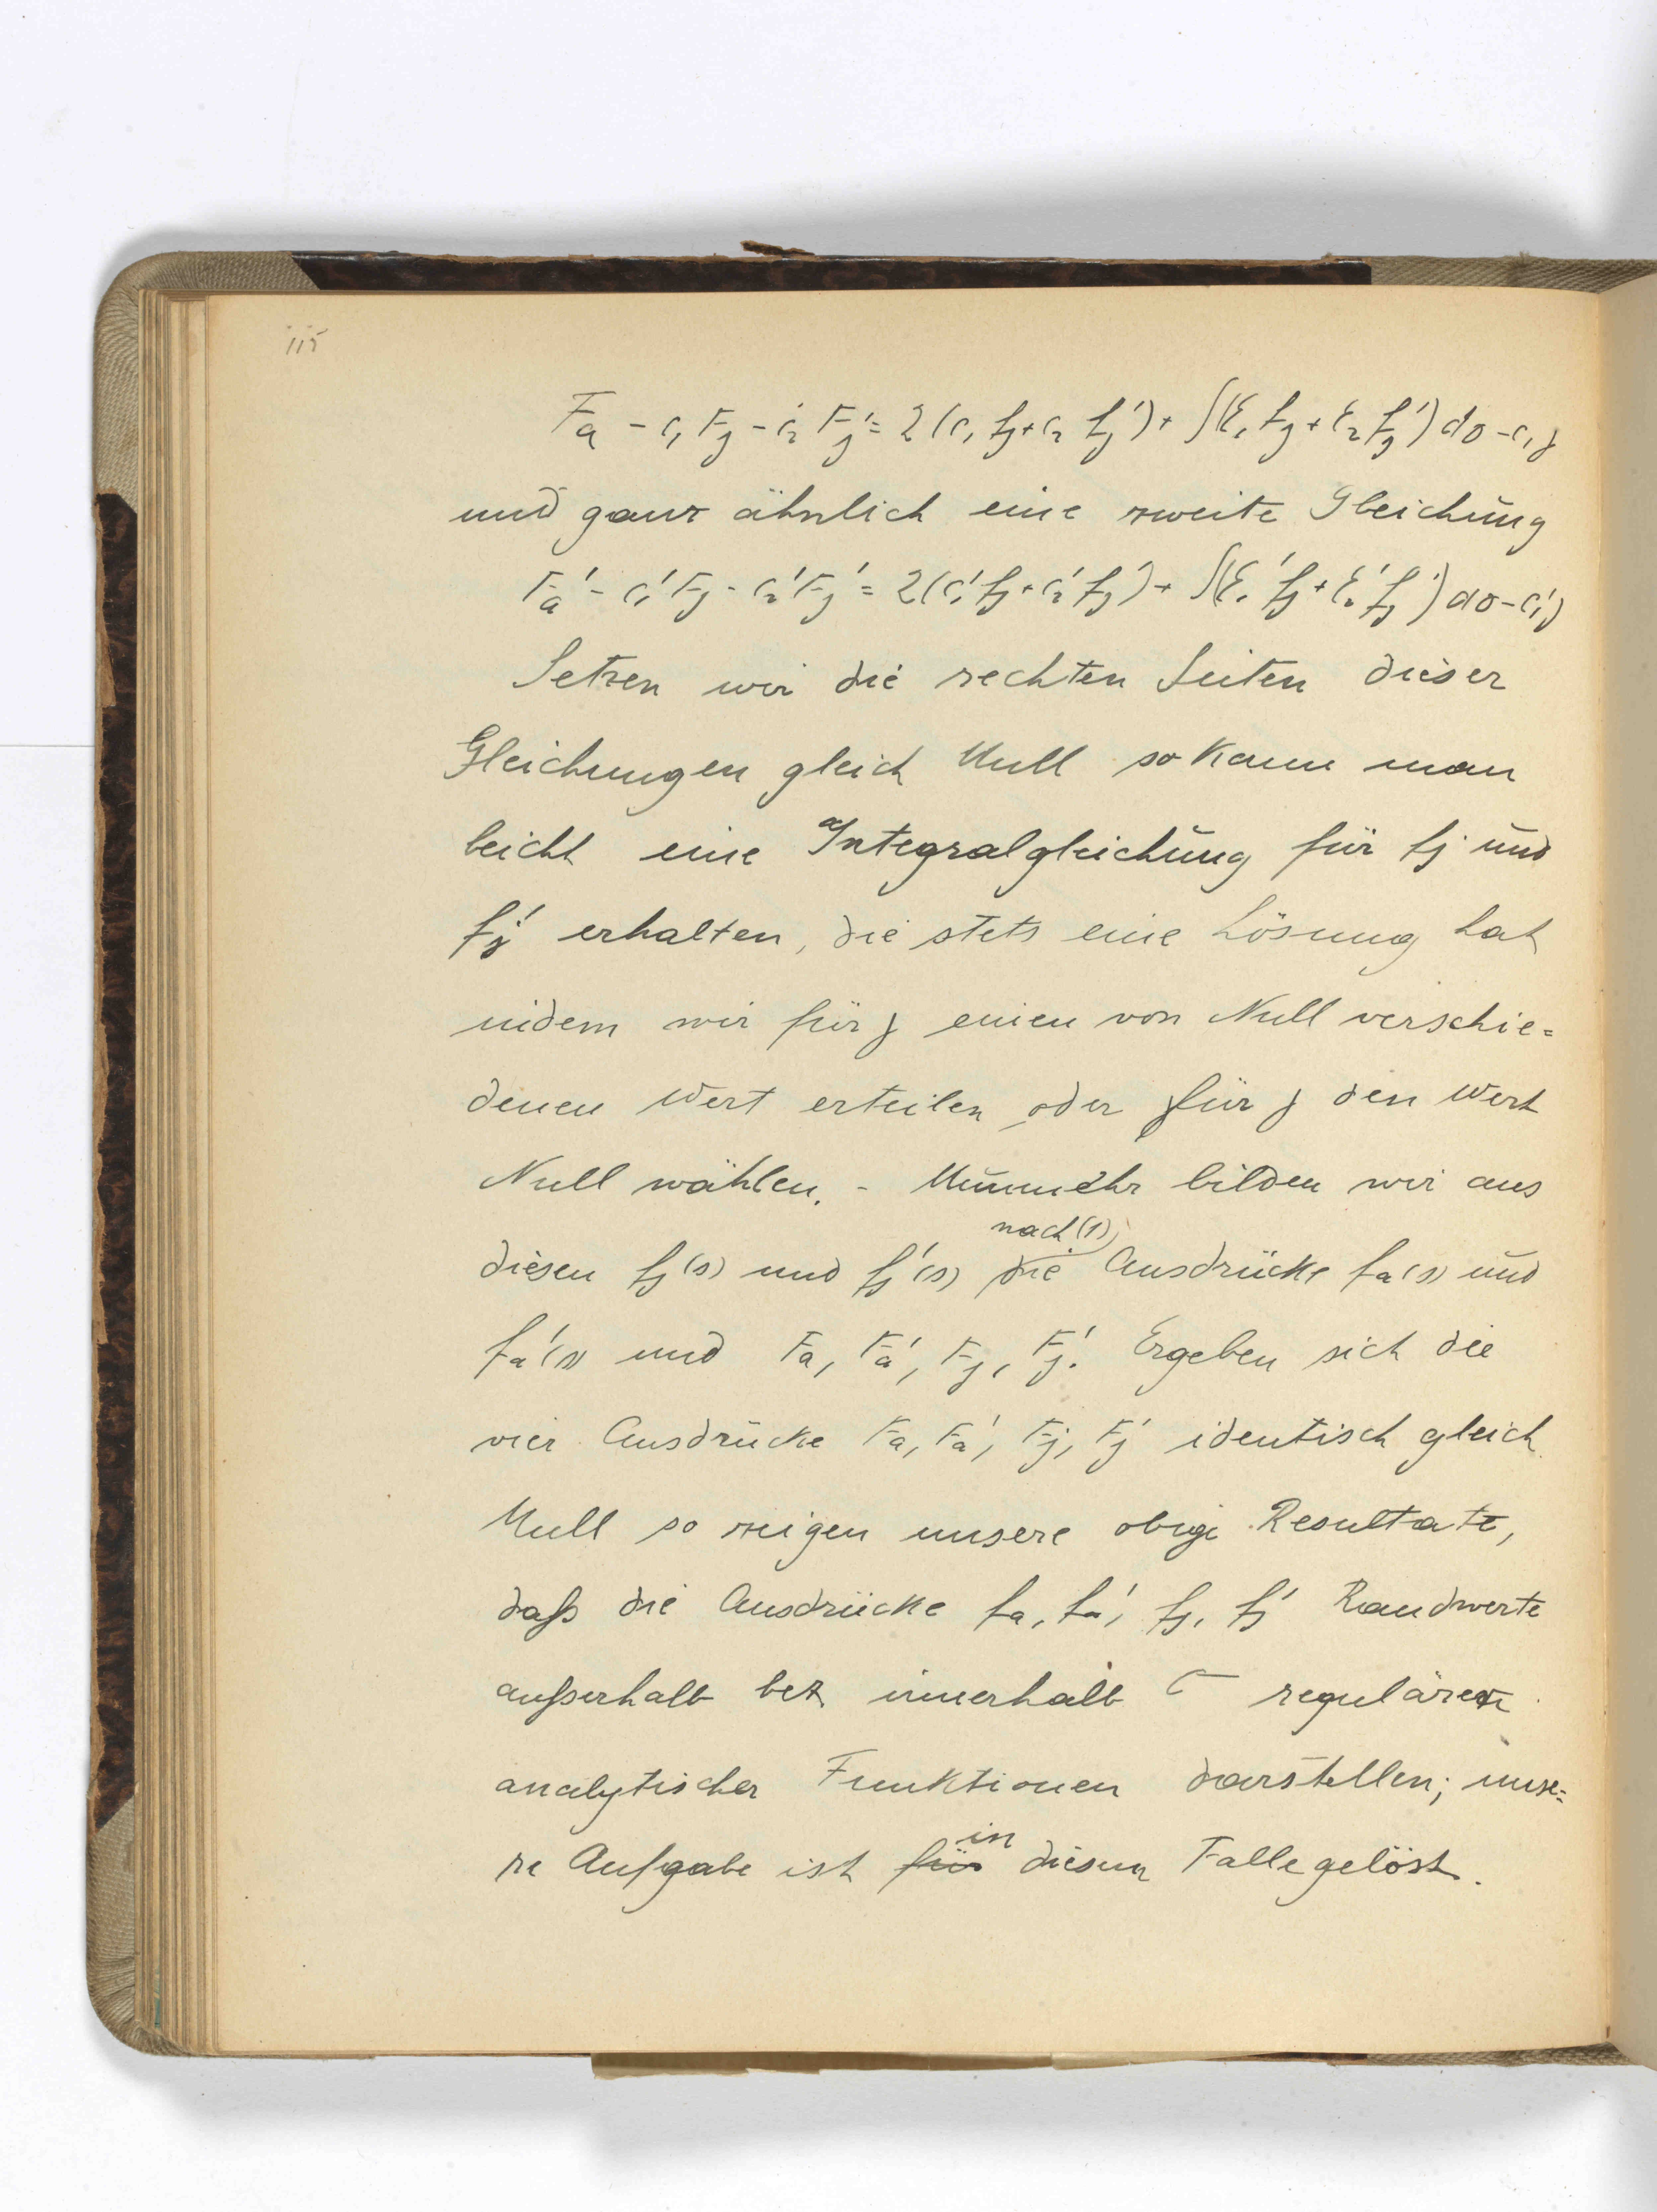 115
F_a - c_1 F_j - c_2 F_j' = 2(c_1 f_j + c_2 f_j') + ∫(ℰ_1 f_j + ℰ_2 f_j') dσ - c_1 j
und ganz ähnlich eine zweite Gleichung
F_a' - c_1' F_j - c_2' F_j' = 2(c_1' f_j + c_2' f_j') + ∫(ℰ_1' f_j + ℰ_2' f_j') dσ - c_1' j
Setzen wir die rechten Seiten dieser
Gleichungen gleich Null so kann man
leicht eine Integralgleichung für f_j und
f_j' erhalten, die stets eine Lösung hat
indem wir für j einen von Null verschie=
denen Wert erteilen oder für j den Wert
Null wählen. - Nunmehr bilden wir aus
nach (1)
diesen f_j(s) und f_j'(s) die Ausdrücke f_a(s) und
f_a'(s) und F_a, F_a', F_j, F_j'. Ergeben sich die
vier Ausdrücke F_a, F_a', F_j, F_j' identisch gleich
Null so zeigen unsere obige Resultate,
daß die Ausdrücke f_a, f_a', f_j, f_j' Randwerte
außerhalb bez innerhalb C regulären
analytischer Funktionen darstellen; unse=
in
re Aufgabe ist für diesem Falle gelöst.